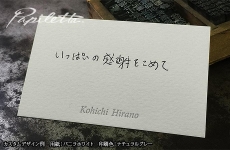 Papeletta
いっぱいの感謝をこめて
Kohichi Hirano
カスタムデザイン例 用紙：バニラホワイト 印刷色：ナチュラルグレー